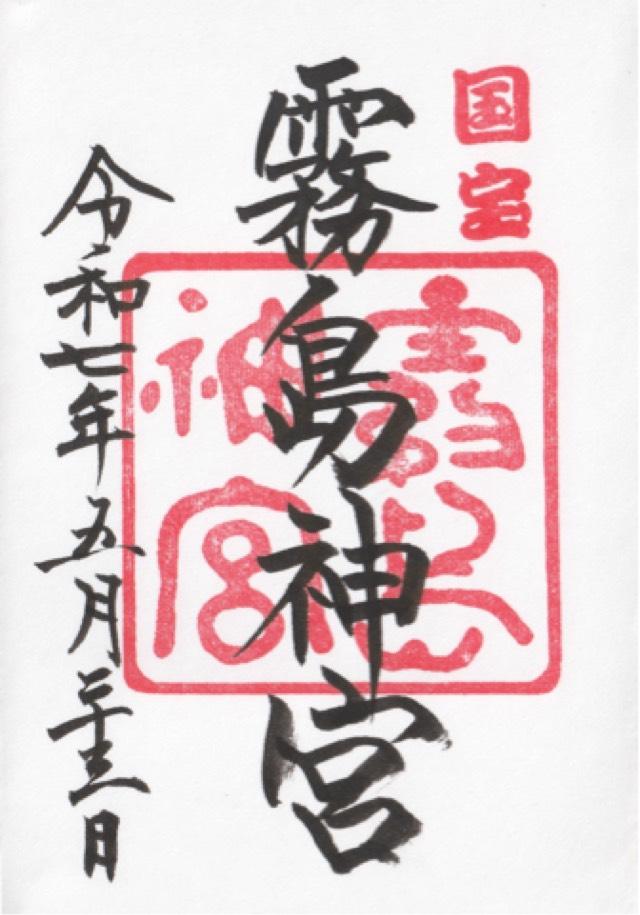 国宝
霧島神宮
霧島
神宮
令和七年五月二十三日